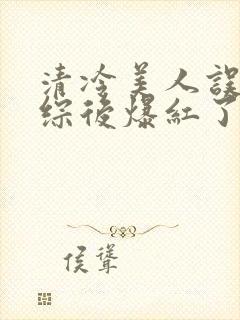 清冷美人誤
综後爆紅了
侯聳